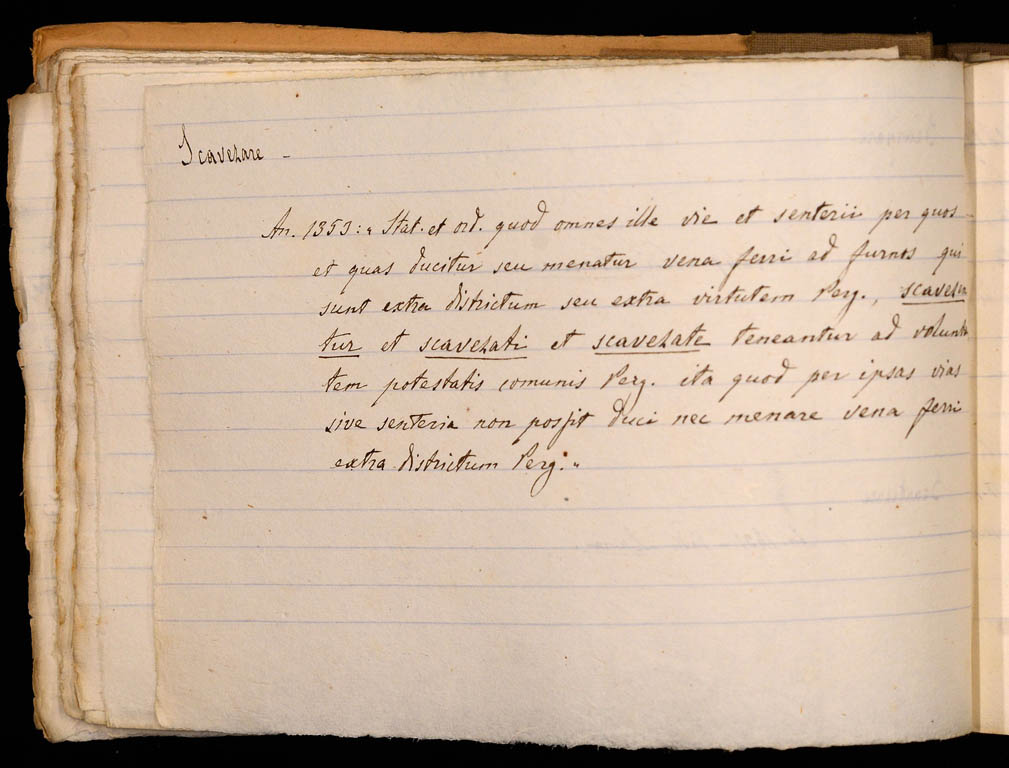 Scavezare -
An. 1353: " Stat. et ord. quod omnes ille vie et senterii per quos
et quas ducitur seu menatur vena ferri ad furnos qui
sunt extra districtum seu extra virtutem Perg., scavezen
tur et scavezati et scavezate teneantur ad volunta
tem potestatis comunis Perg. ita quod per ipsas vias
sive senteria non possit duci nec menare vena ferri
extra districtum Perg. "